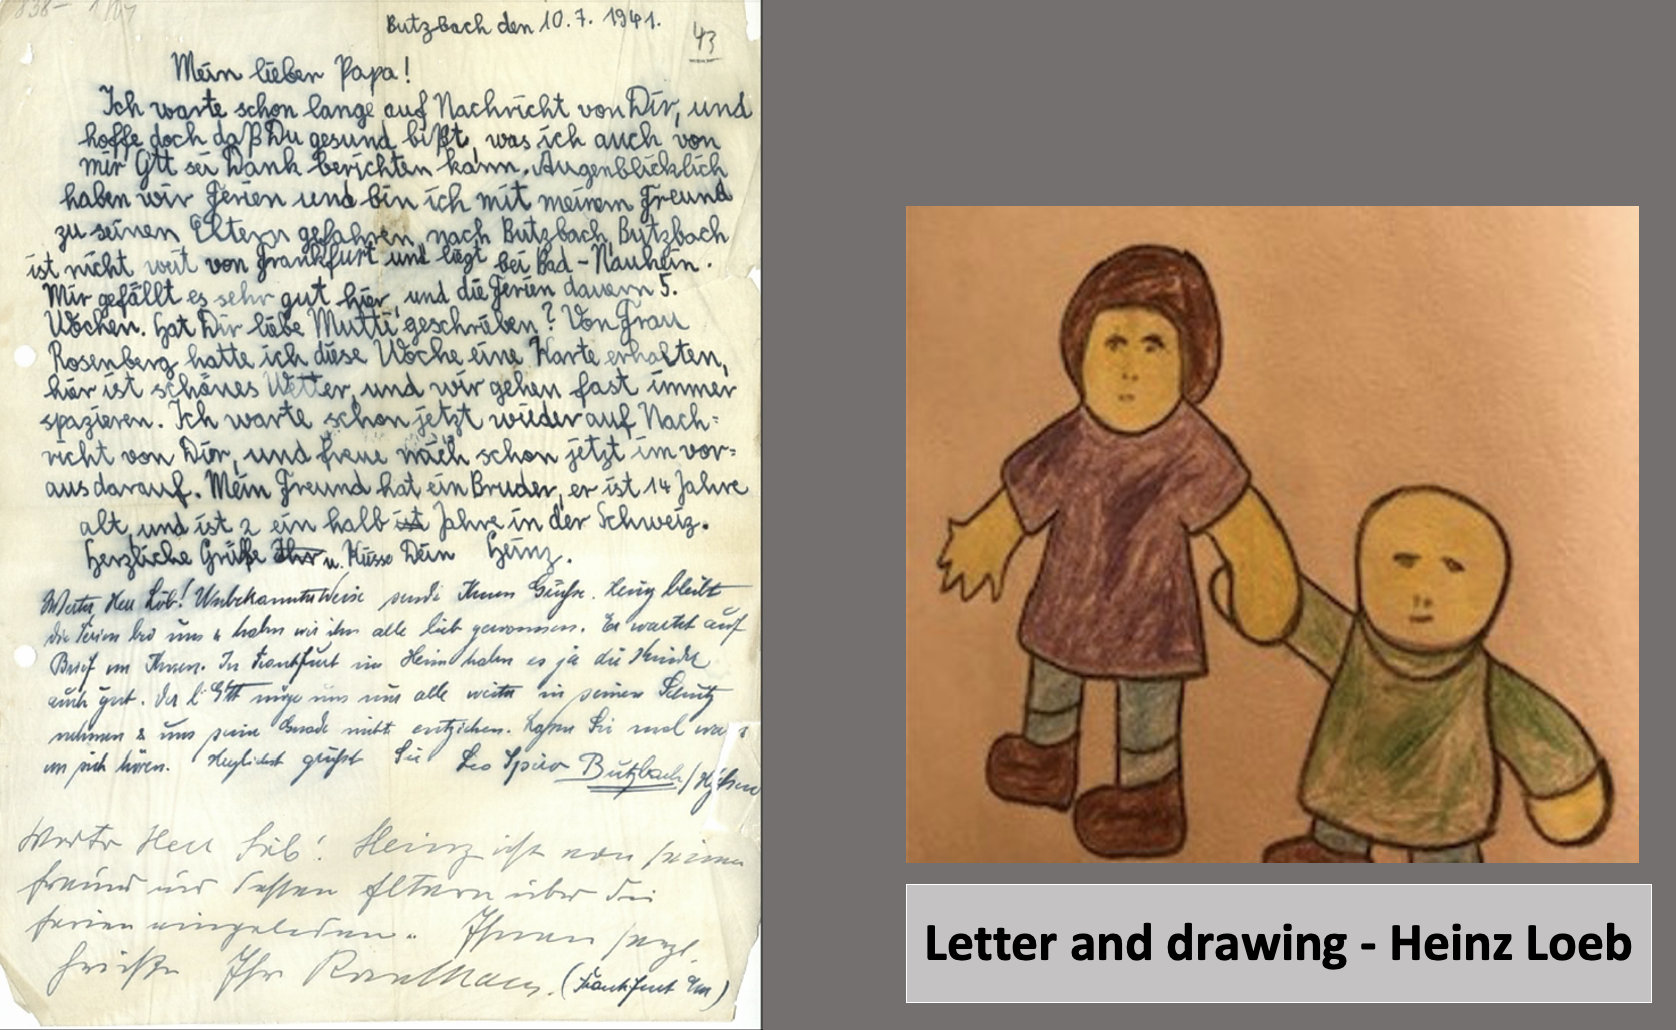 Butzbach den 10.7.1941.
43
Mein lieber Papa!
Ich warte schon lange auf Nachricht von Dir, und
hoffe doch daß Du gesund bißt, was ich auch von
mir Gtt sei Dank berichten kann. Augenblicklich
haben wir Ferien und bin ich mit meinem Freund
zu seinen Eltern gefahren, nach Butzbach, Butzbach
ist nicht weit von Frankfurt und liegt bei Bad-Nauheim.
Mir gefällt es sehr gut hier, und die Ferien dauern 5.
Wochen. Hat Dir liebe Mutti geschrieben? Von Frau
Rosenberg hatte ich diese Woche eine Karte erhalten,
hier ist schönes Wetter, und wir gehen fast immer
spazieren. Ich warte schon jetzt wieder auf Nach=
richt von Dir, und freue mich schon jetzt im vor=
aus darauf. Mein Freund hat ein Bruder, er ist 14 Jahre
alt, und ist 2 ein halb ist Jahre in der Schweiz.
Herzliche Grüße u. Küsse Dein Heinz.
Werter Herr Löb! Unbekannterweise sende Ihnen Grüße. Heinz bleibt
die Ferien bei uns & haben wir ihn alle lieb gewonnen. Er wartet auf
Brief von Ihnen. In Frankfurt im Heim haben es ja die Kinder
auch gut. Der l. Gtt möge uns nur alle weiter in seinen Schutz
nehmen & uns seine Gnade nicht entziehen. Lassen Sie mal was
von sich hören. Herzlichst grüßt Sie Leo Spiro Butzbach/Hessen
Werter Herr Löb! Heinz ist von seinem
Freund und dessen Eltern über die
Ferien eingeladen. Ihnen herzl.
Grüße Ihr (Frankfurt a/m)
Letter and drawing - Heinz Loeb